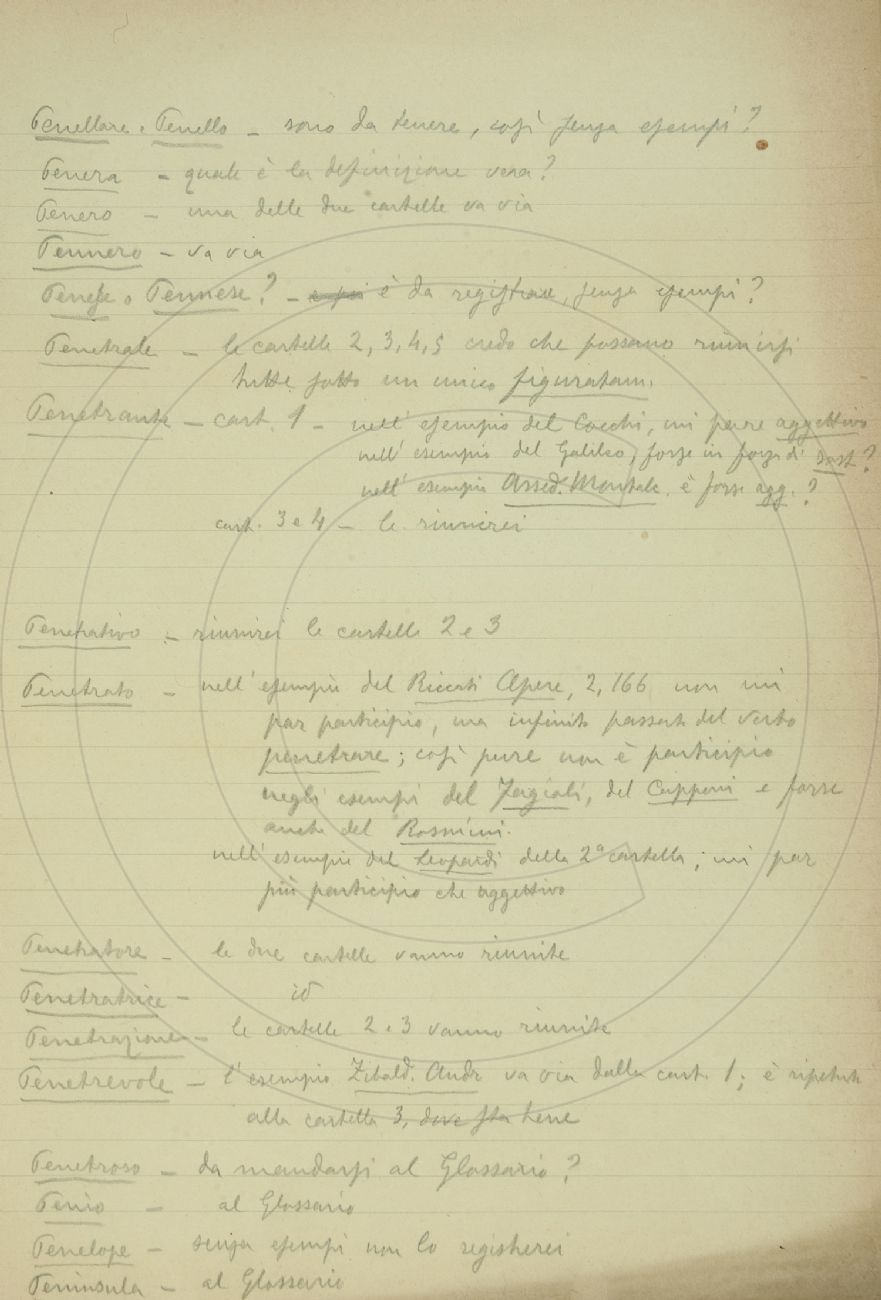 Penellare e Penello - sono da tenere, così senza esempi?
Penera - quale è la definizione vera?
Penero - una delle due cartelle va via
Pennero - va via
Penese o Pennese? - è da registrare, senza esempi?
Penetrale - le cartelle 2, 3, 4, 5 credo che possano riunirsi
tutte sotto un unico figuratam.
Penetrante - cart. 1 - nell' esempio del Cocchi, mi pare aggettivo
nell' esempio del Galileo, forse in forza di sost.?
nell' esempio Assed. Montalc. è forse agg.?
cart. 3 e 4 - le riunirei
Penetrativo - riunirei le cartelle 2 e 3
Penetrato - nell' esempio del Riccati Opere, 2, 166 non mi
par participio, ma infinito passato del verbo
penetrare; così pure non è participio
negli esempi del Fagioli, del Capponi e forse
anche del Rosmini.
nell' esempio del Leopardi della 2ª cartella, mi par
più participio che aggettivo
Penetratore - le due cartelle vanno riunite
Penetratrice - id
Penetrazione - le cartelle 2 e 3 vanno riunite
Penetrevole - l'esempio Zibald. Andr va via dalla cart. 1; è ripetuto
alla cartella 3, dove sta bene
Penetroso - da mandarsi al Glossario?
Penio - al Glossario
Penelope - senza esempi non lo registrerei
Peninsula - al Glossario